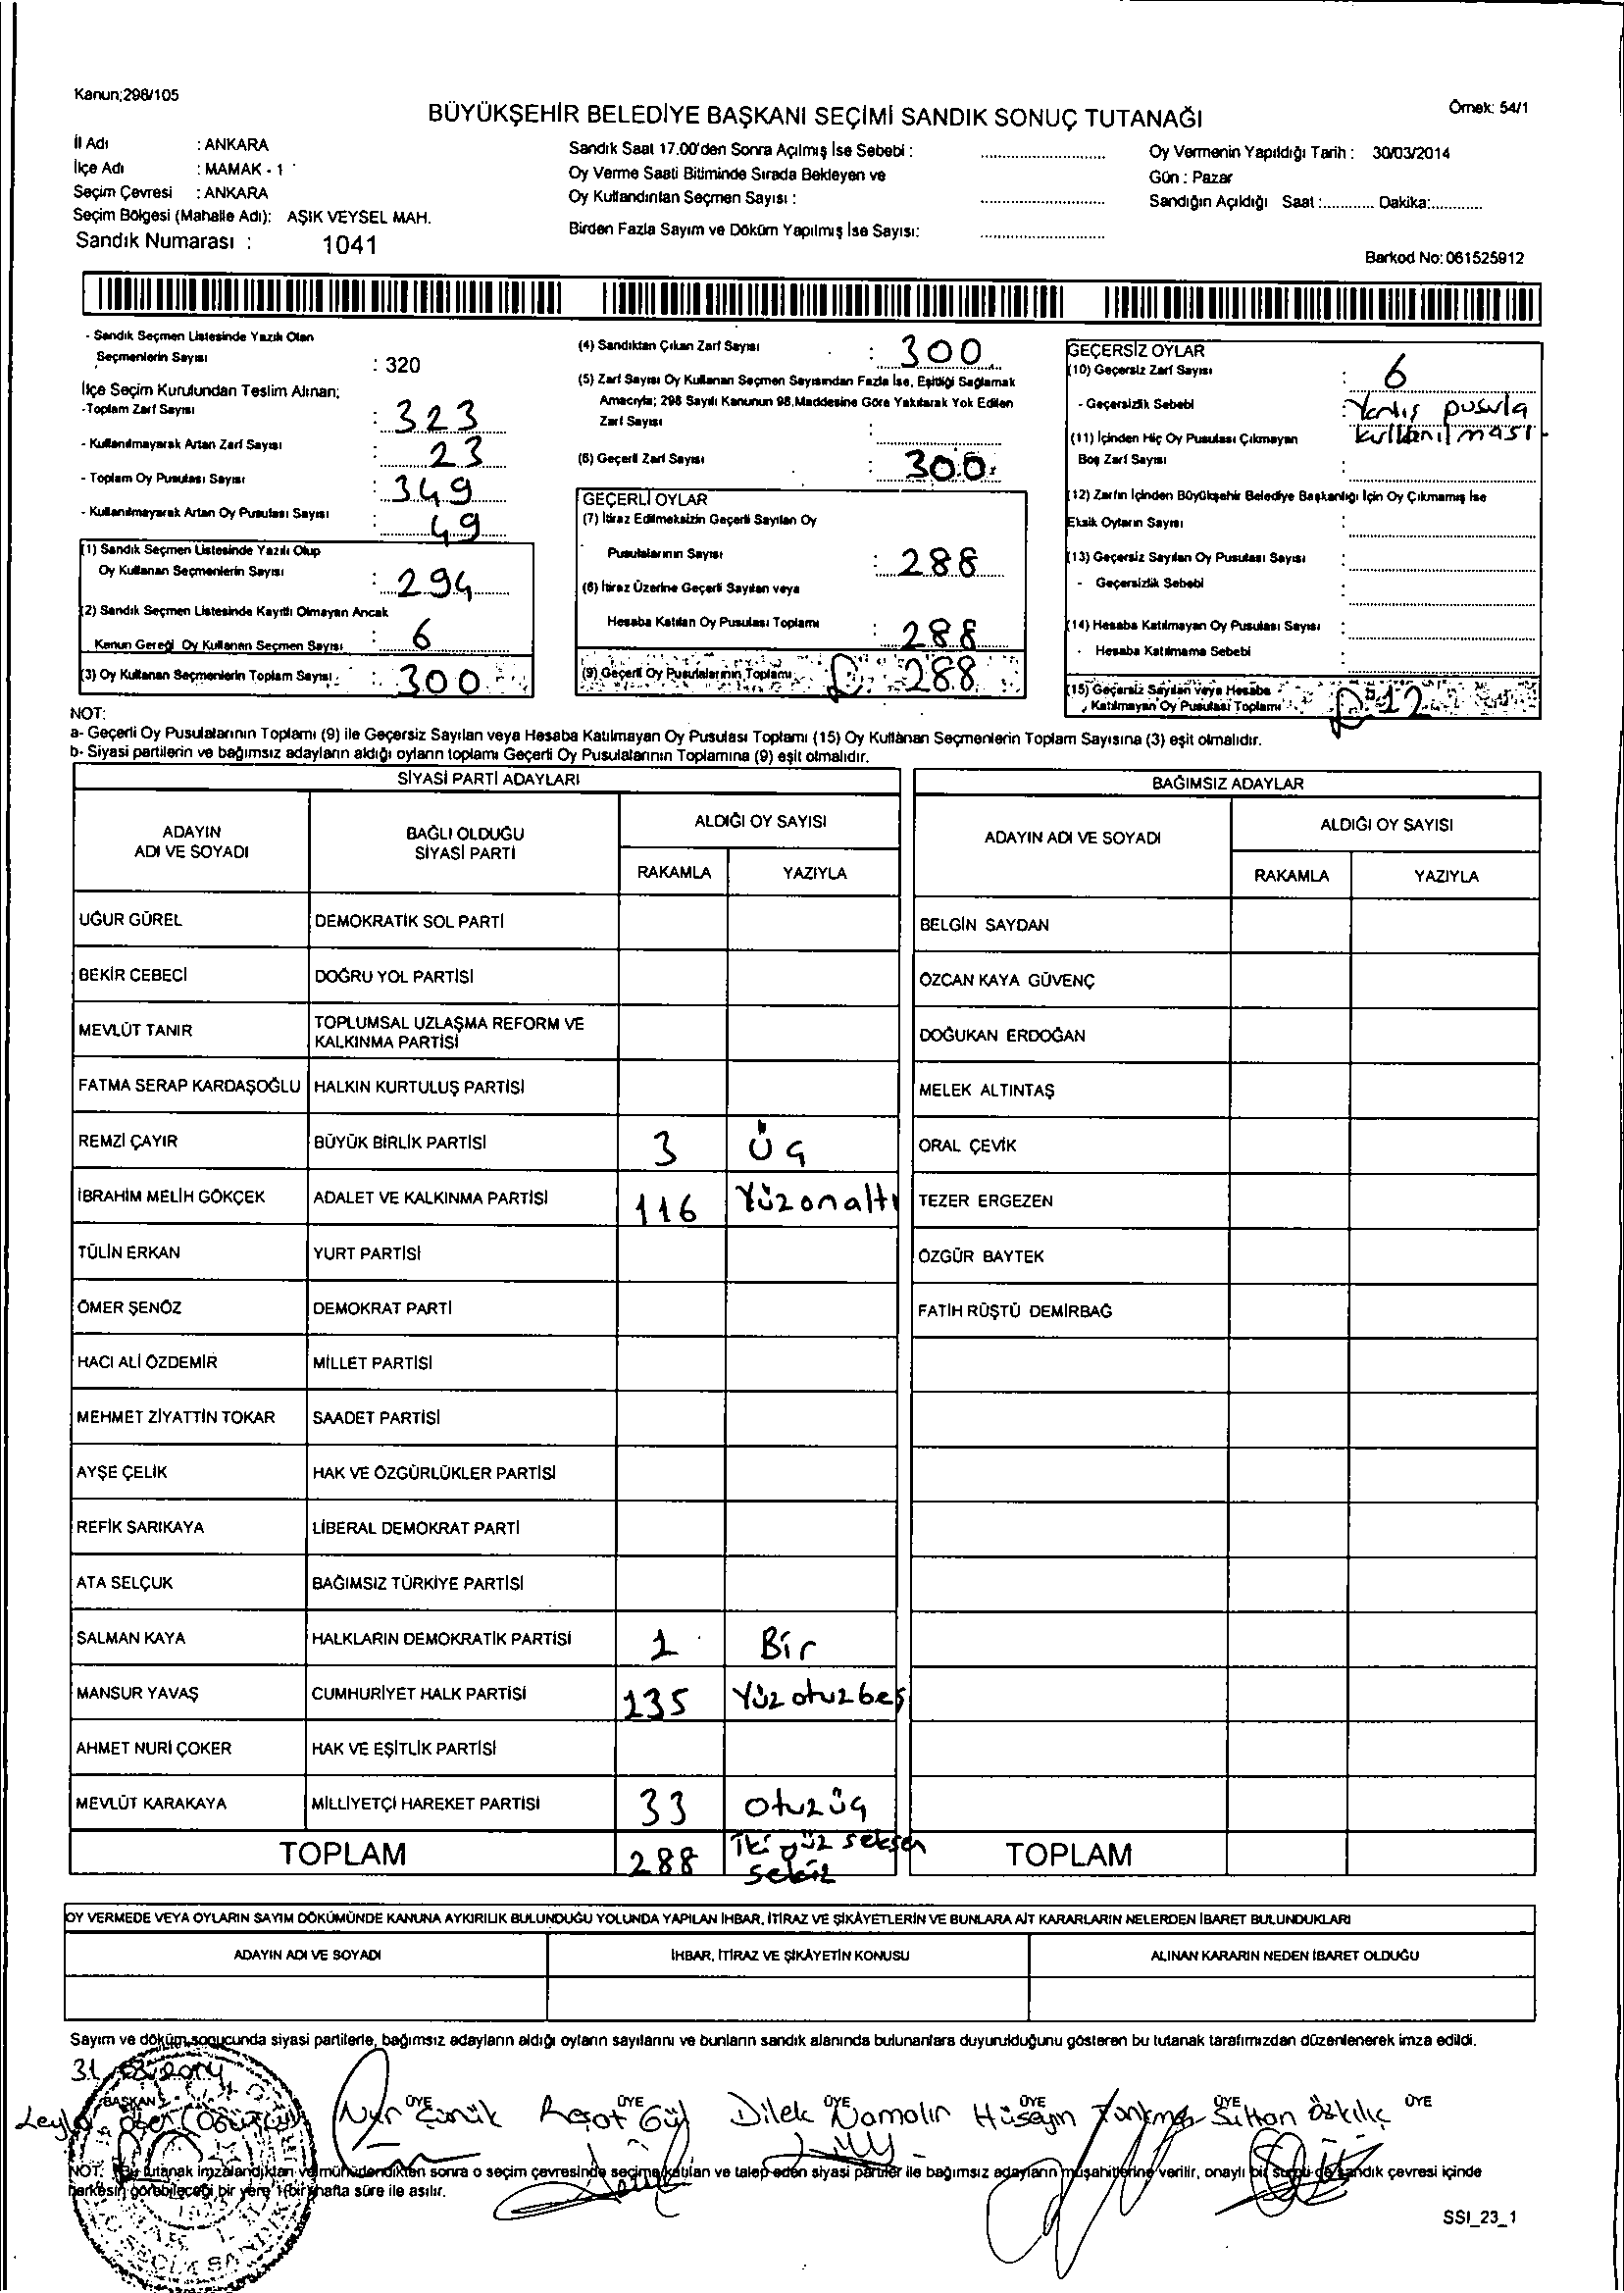 Kanun;298/105
BÜYÜKŞEHİR BELEDİYE BAŞKANI SEÇİMİ SANDIK SONUÇ TUTANAĞI
Örnek: 54/1
İl Adı : ANKARA
İlçe Adı : MAMAK - 1
Seçim Çevresi : ANKARA
Seçim Bölgesi (Mahalle Adı): AŞIK VEYSEL MAH.
Sandık Numarası : 1041
Sandık Saat 17.00'den Sonra Açılmış İse Sebebi :
Oy Verme Saati Bitiminde Sırada Bekleyen ve
Oy Kullandırılan Seçmen Sayısı :
Birden Fazla Sayım ve Döküm Yapılmış İse Sayısı:
Oy Vermenin Yapıldığı Tarih : 30/03/2014
Gün : Pazar
Sandığın Açıldığı Saat :............ Dakika:............
Barkod No: 061525912
- Sandık Seçmen Listesinde Yazılı Olan
Seçmenlerin Sayısı : 320
İlçe Seçim Kurulundan Teslim Alınan;
-Toplam Zarf Sayısı : 323
- Kullanılmayarak Artan Zarf Sayısı : 23
- Toplam Oy Pusulası Sayısı : 349
- Kullanılmayarak Artan Oy Pusulası Sayısı : 49
(1) Sandık Seçmen Listesinde Yazılı Olup
Oy Kullanan Seçmenlerin Sayısı : 294
(2) Sandık Seçmen Listesinde Kayıtlı Olmayan Ancak
Kanun Gereği Oy Kullanan Seçmen Sayısı : 6
(3) Oy Kullanan Seçmenlerin Toplam Sayısı : 300
(4) Sandıktan Çıkan Zarf Sayısı : 300
(5) Zarf Sayısı Oy Kullanan Seçmen Sayısından Fazla İse, Eşitliği Sağlamak
Amacıyla; 298 Sayılı Kanunun 98.Maddesine Göre Yakılarak Yok Edilen
Zarf Sayısı :
(6) Geçerli Zarf Sayısı : 300
GEÇERLİ OYLAR
(7) İtiraz Edilmeksizin Geçerli Sayılan Oy
Pusulalarının Sayısı : 288
(8) İtiraz Üzerine Geçerli Sayılan veya
Hesaba Katılan Oy Pusulası Toplamı : 288
(9) Geçerli Oy Pusulalarının Toplamı : 288
GEÇERSİZ OYLAR
(10) Geçersiz Zarf Sayısı : 6
- Geçersizlik Sebebi : Yanlış pusula
kullanılması
(11) İçinden Hiç Oy Pusulası Çıkmayan
Boş Zarf Sayısı :
(12) Zarfın İçinden Büyükşehir Belediye Başkanlığı İçin Oy Çıkmamış İse
Eksik Oyların Sayısı :
(13) Geçersiz Sayılan Oy Pusulası Sayısı :
- Geçersizlik Sebebi :
(14) Hesaba Katılmayan Oy Pusulası Sayısı :
- Hesaba Katılmama Sebebi :
(15) Geçersiz Sayılan veya Hesaba
Katılmayan Oy Pusulası Toplamı : 12
NOT:
a- Geçerli Oy Pusulalarının Toplamı (9) ile Geçersiz Sayılan veya Hesaba Katılmayan Oy Pusulası Toplamı (15) Oy Kullanan Seçmenlerin Toplam Sayısına (3) eşit olmalıdır.
b- Siyasi partilerin ve bağımsız adayların aldığı oyların toplamı Geçerli Oy Pusulalarının Toplamına (9) eşit olmalıdır.
SİYASİ PARTİ ADAYLARI
ADAYIN ADI VE SOYADI BAĞLI OLDUĞU SİYASİ PARTİ ALDIĞI OY SAYISI
RAKAMLA YAZIYLA
UĞUR GÜREL DEMOKRATİK SOL PARTİ
BEKİR CEBECİ DOĞRU YOL PARTİSİ
MEVLÜT TANIR TOPLUMSAL UZLAŞMA REFORM VE KALKINMA PARTİSİ
FATMA SERAP KARDAŞOĞLU HALKIN KURTULUŞ PARTİSİ
REMZİ ÇAYIR BÜYÜK BİRLİK PARTİSİ 3 Üç
İBRAHİM MELİH GÖKÇEK ADALET VE KALKINMA PARTİSİ 116 Yüzonaltı
TÜLİN ERKAN YURT PARTİSİ
ÖMER ŞENÖZ DEMOKRAT PARTİ
HACI ALİ ÖZDEMİR MİLLET PARTİSİ
MEHMET ZİYATTİN TOKAR SAADET PARTİSİ
AYŞE ÇELİK HAK VE ÖZGÜRLÜKLER PARTİSİ
REFİK SARIKAYA LİBERAL DEMOKRAT PARTİ
ATA SELÇUK BAĞIMSIZ TÜRKİYE PARTİSİ
SALMAN KAYA HALKLARIN DEMOKRATİK PARTİSİ 1 Bir
MANSUR YAVAŞ CUMHURİYET HALK PARTİSİ 135 Yüz otuz beş
AHMET NURİ ÇOKER HAK VE EŞİTLİK PARTİSİ
MEVLÜT KARAKAYA MİLLİYETÇİ HAREKET PARTİSİ 33 Otuz üç
TOPLAM 288 İki yüz seksen
sekiz
BAĞIMSIZ ADAYLAR
ADAYIN ADI VE SOYADI ALDIĞI OY SAYISI
RAKAMLA YAZIYLA
BELGİN SAYDAN
ÖZCAN KAYA GÜVENÇ
DOĞUKAN ERDOĞAN
MELEK ALTINTAŞ
ORAL ÇEVİK
TEZER ERGEZEN
ÖZGÜR BAYTEK
FATİH RÜŞTÜ DEMİRBAĞ
TOPLAM
OY VERMEDE VEYA OYLARIN SAYIM DÖKÜMÜNDE KANUNA AYKIRILIK BULUNDUĞU YOLUNDA YAPILAN İHBAR, İTİRAZ VE ŞİKÂYETLERİN VE BUNLARA AİT KARARLARIN NELERDEN İBARET BULUNDUKLARI
ADAYIN ADI VE SOYADI İHBAR, İTİRAZ VE ŞİKÂYETİN KONUSU ALINAN KARARIN NEDEN İBARET OLDUĞU
Sayım ve döküm sonucunda siyasi partilerle, bağımsız adayların aldığı oyların sayılarını ve bunların sandık alanında bulunanlara duyurulduğunu gösteren bu tutanak tarafımızdan düzenlenerek imza edildi.
31.03.2014
BAŞKAN ÜYE ÜYE ÜYE ÜYE ÜYE ÜYE
Nur Reşat Gül Dilek Hüseyin Sultan Özkılıç
NOT: Bu tutanak imzalandıktan ve mühürlendikten sonra o seçim çevresinde seçime katılan ve talep eden siyasi partiler ile bağımsız adayların müşahitlerine verilir, onaylı bir sureti de sandık çevresi içinde
herkesin görebileceği bir yere 1(bir) hafta süre ile asılır.
SSI_23_1